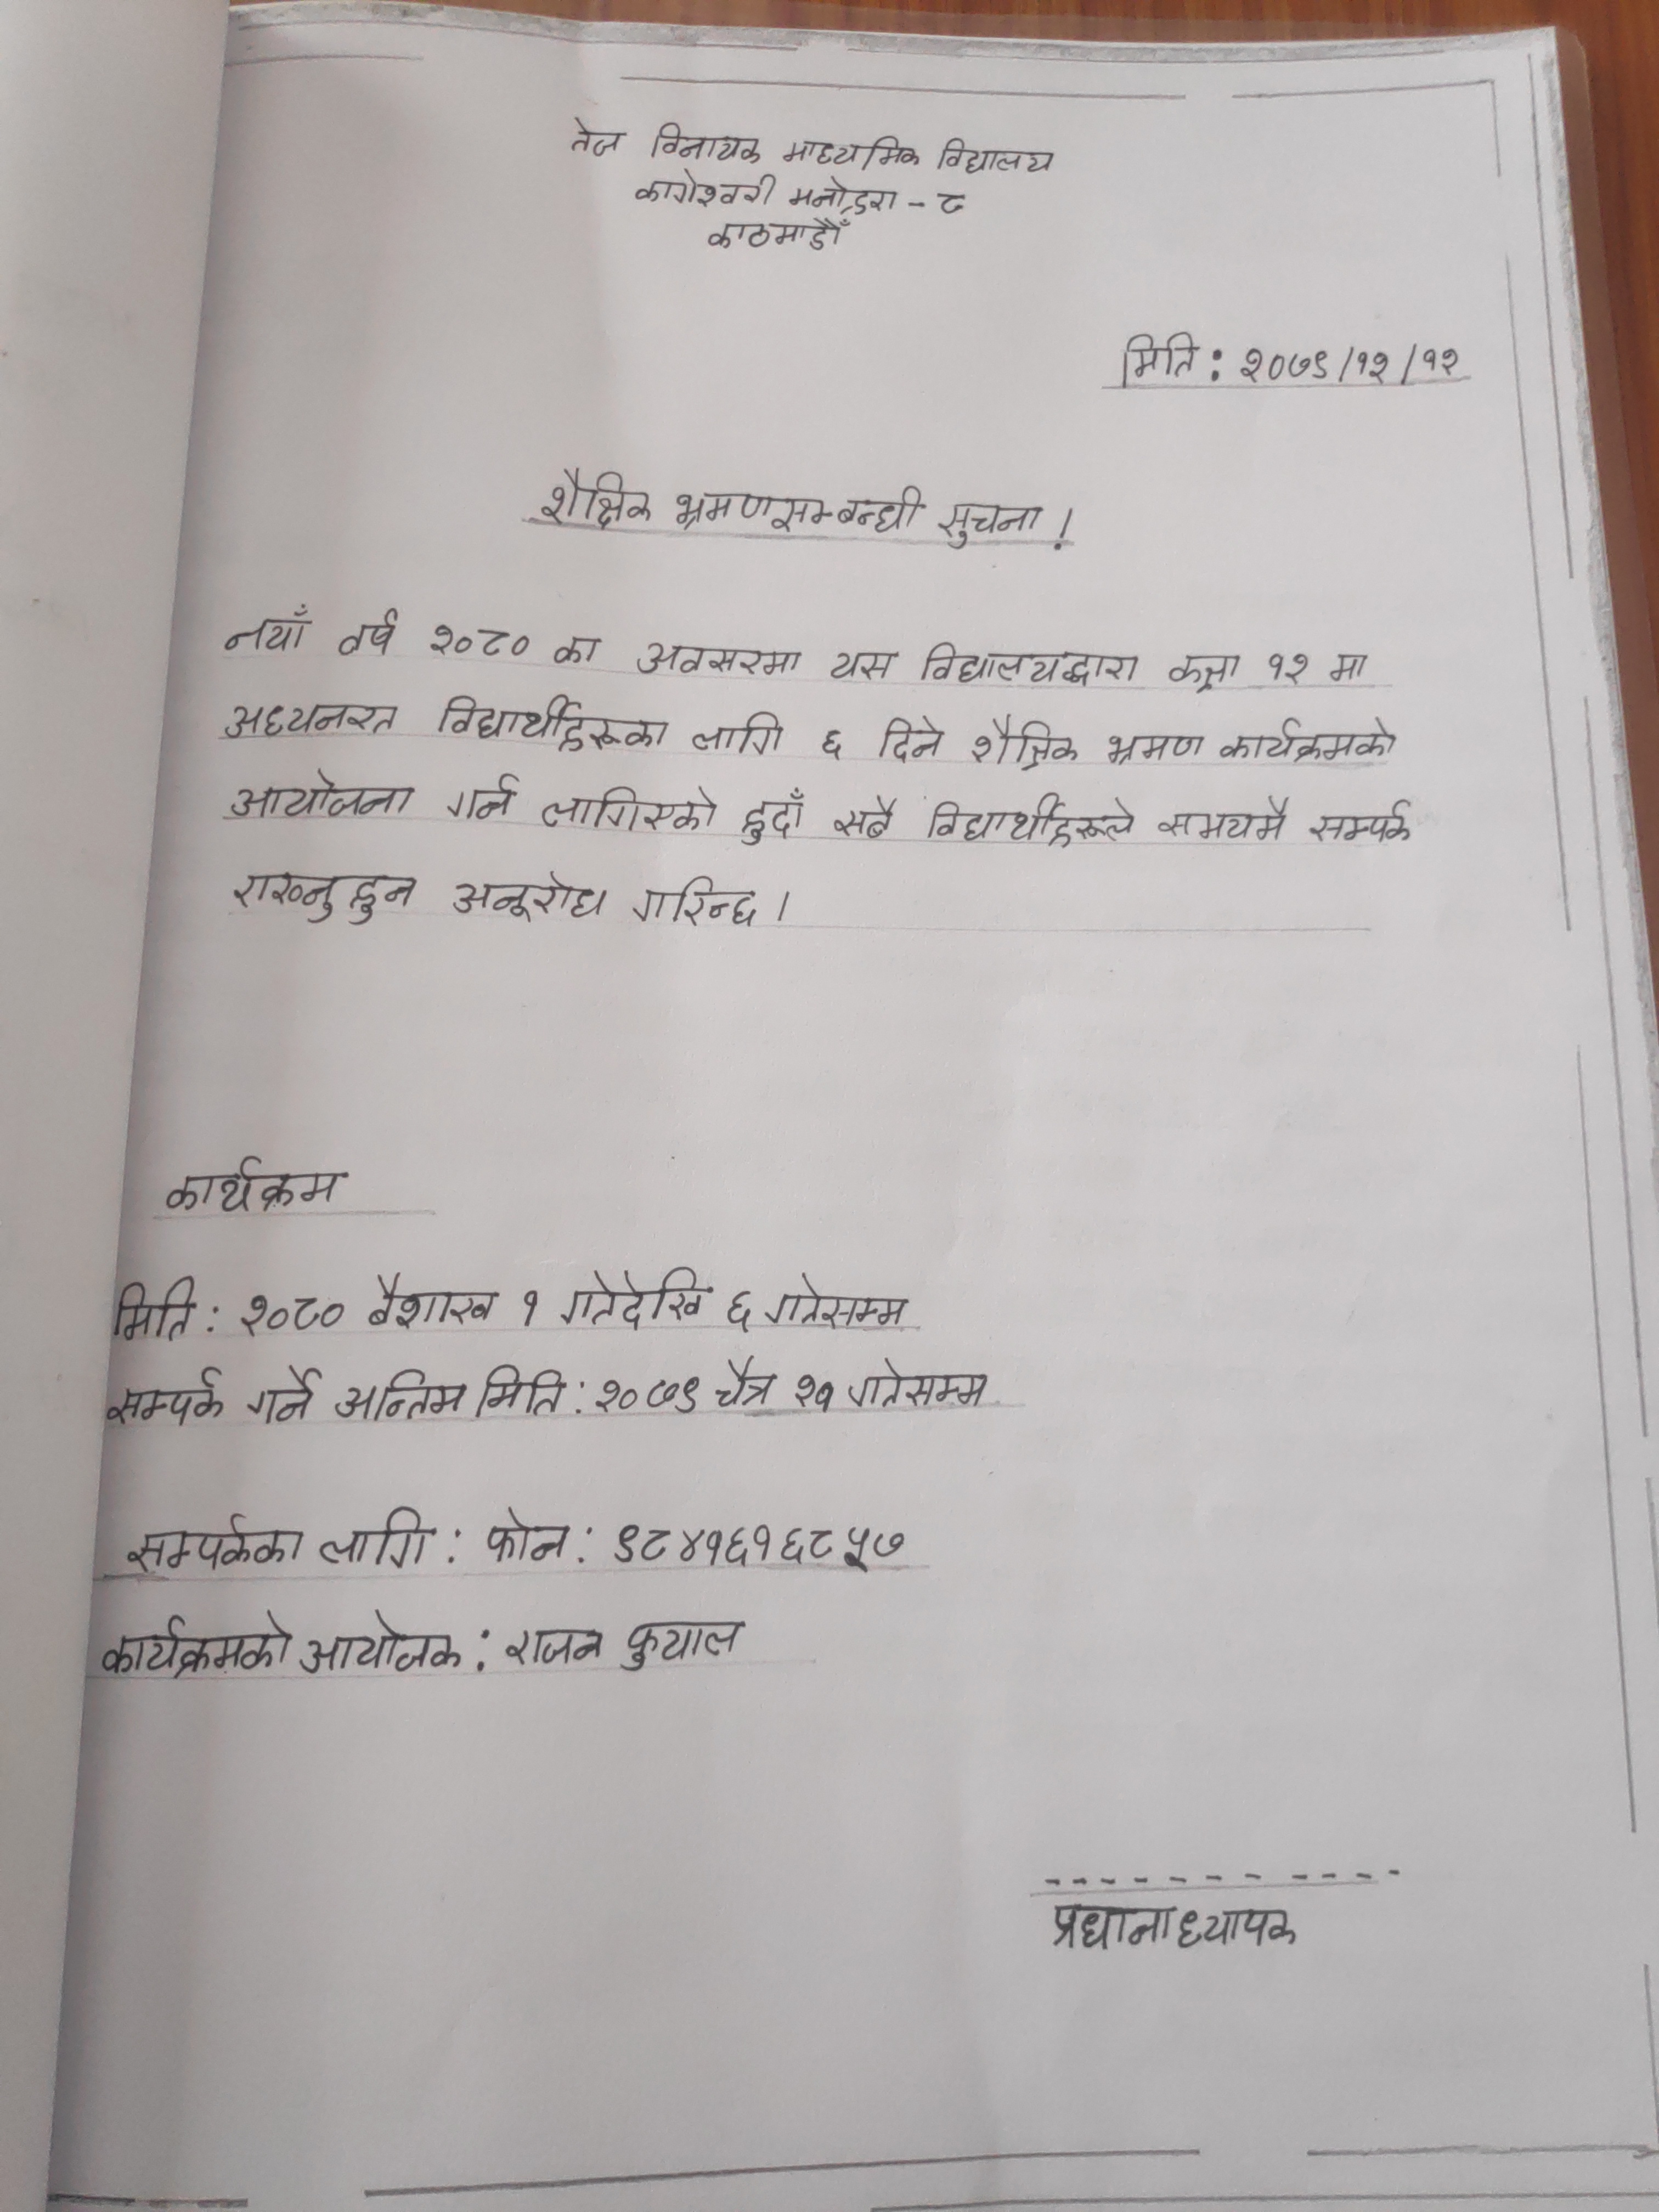 तेज विनायक माध्यमिक विद्यालय
कागेश्वरी मनोहरा - ८
काठमाडौँ
मिति : २०७९/१२/१२
शैक्षिक भ्रमणसम्बन्धी सुचना !
नयाँ वर्ष २०८० का अवसरमा यस विद्यालयद्धारा कक्षा १२ मा
अध्यनरत विद्यार्थीहरूका लागि ६ दिने शैक्षिक भ्रमण कार्यक्रमको
आयोजना गर्न लागिएको हुदाँ सबै विद्यार्थीहरूले समयमै सम्पर्क
राख्नुहुन अनूरोध गरिन्छ ।
कार्यक्रम
मिति : २०८० बैशाख १ गतेदेखि ६ गतेसम्म
सम्पर्क गर्ने अन्तिम मिति : २०७९ चैत्र २१ गतेसम्म
सम्पर्कका लागि : फोन : ९८४१६१६८५७
कार्यक्रमको आयोजक : राजन फुयाल
- - - - - - - - - - - -
प्रधानाध्यापक